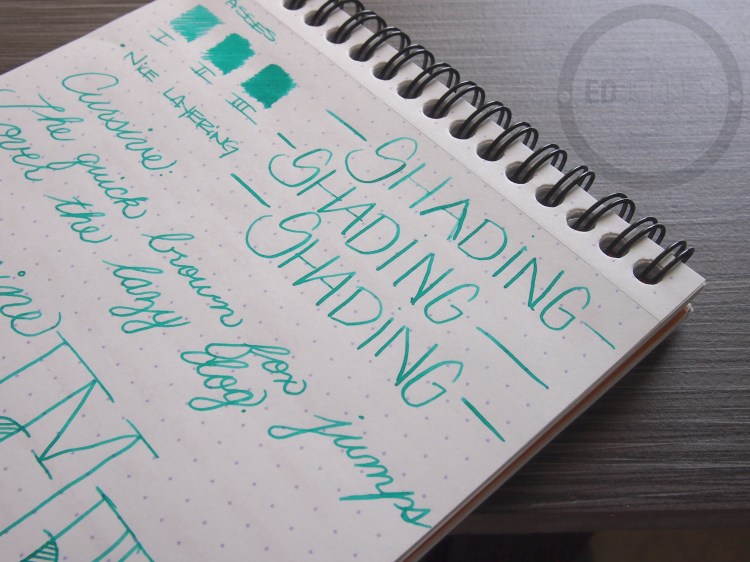 ASSES
I II III
· NICE LAYERING
- SHADING -
- SHADING -
- SHADING -
Cursive:
The quick brown fox jumps
over the lazy dog.
ine
ED